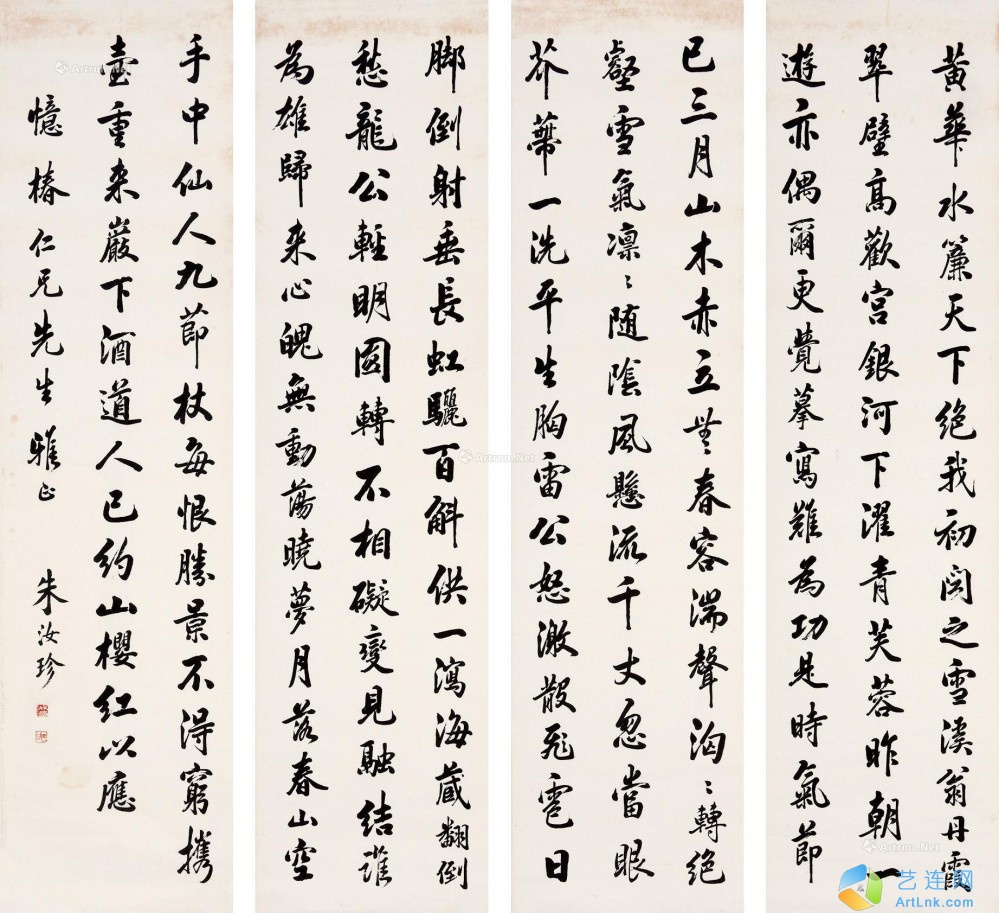 黃華水簾天下絕我初聞之雪溪翁丹霞
翠壁高歡宮銀河下濯青芙蓉昨朝一
遊亦偶爾更覺摹寫難為功是時氣節
已三月山木赤立無春容湍聲洶〻轉絕
壑雪氣凛〻隨陰風懸流千丈忽當眼
芥蔕一洗平生胸雷公怒激散飛雹日
脚倒射垂長虹驪百斛供一瀉海藏翻倒
愁龍公輕明圓轉不相礙變見融結誰
為雄歸來心魄無動蕩曉夢月落春山空
手中仙人九節杖每恨勝景不得窮攜
壺重來巖下酒道人已約山櫻紅以應
憶椿仁兄先生雅正
朱汝珍
艺连网
ArtLnk.com
Artron.Net
Artron.Net
Artron.Net
Artron.Net